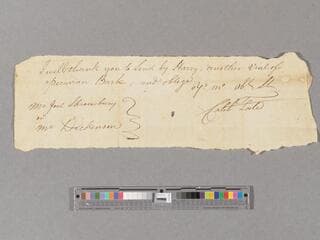 I will thank you to send by Harry, another Vial of
Peruvian Bark, and oblige
yr. mo. ob. St
Mr. Joel
or
Mr. Dickenson
Caleb